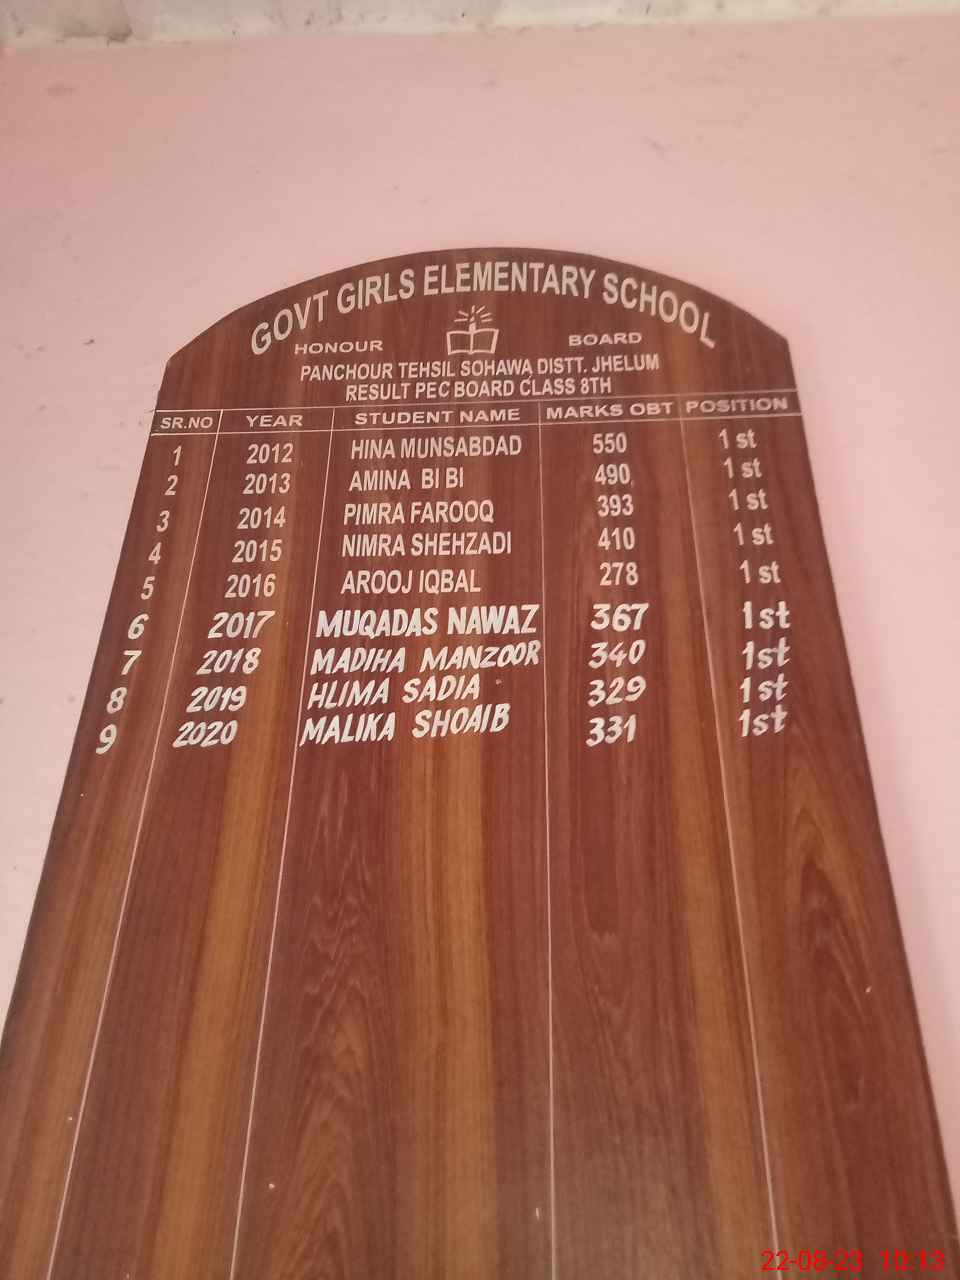 GOVT GIRLS ELEMENTARY SCHOOL
HONOUR BOARD
PANCHOUR TEHSIL SOHAWA DISTT. JHELUM
RESULT PEC BOARD CLASS 8TH
SR.NO YEAR STUDENT NAME MARKS OBT POSITION
1 2012 HINA MUNSABDAD 550 1 st
2 2013 AMINA BI BI 490 1 st
3 2014 PIMRA FAROOQ 393 1 st
4 2015 NIMRA SHEHZADI 410 1 st
5 2016 AROOJ IQBAL 278 1 st
6 2017 MUQADAS NAWAZ 367 1st
7 2018 MADIHA MANZOOR 340 1st
8 2019 HLIMA SADIA 329 1st
9 2020 MALIKA SHOAIB 331 1st
22-08-23 10:13